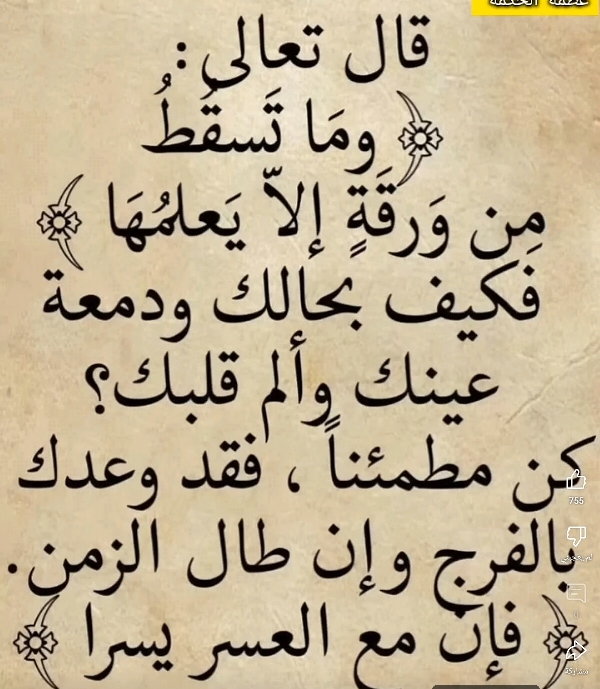 عظمة الحكمة
قال تعالى:
﴿ ومَا تَسقُطُ
مِن وَرقَةٍ إلاّ يَعلمُهَا ﴾
فكيف بحالك ودمعة
عينك وألم قلبك؟
كن مطمئناً ، فقد وعدك
بالفرج وإن طال الزمن.
﴿ فإن مع العسر يسرا ﴾
755